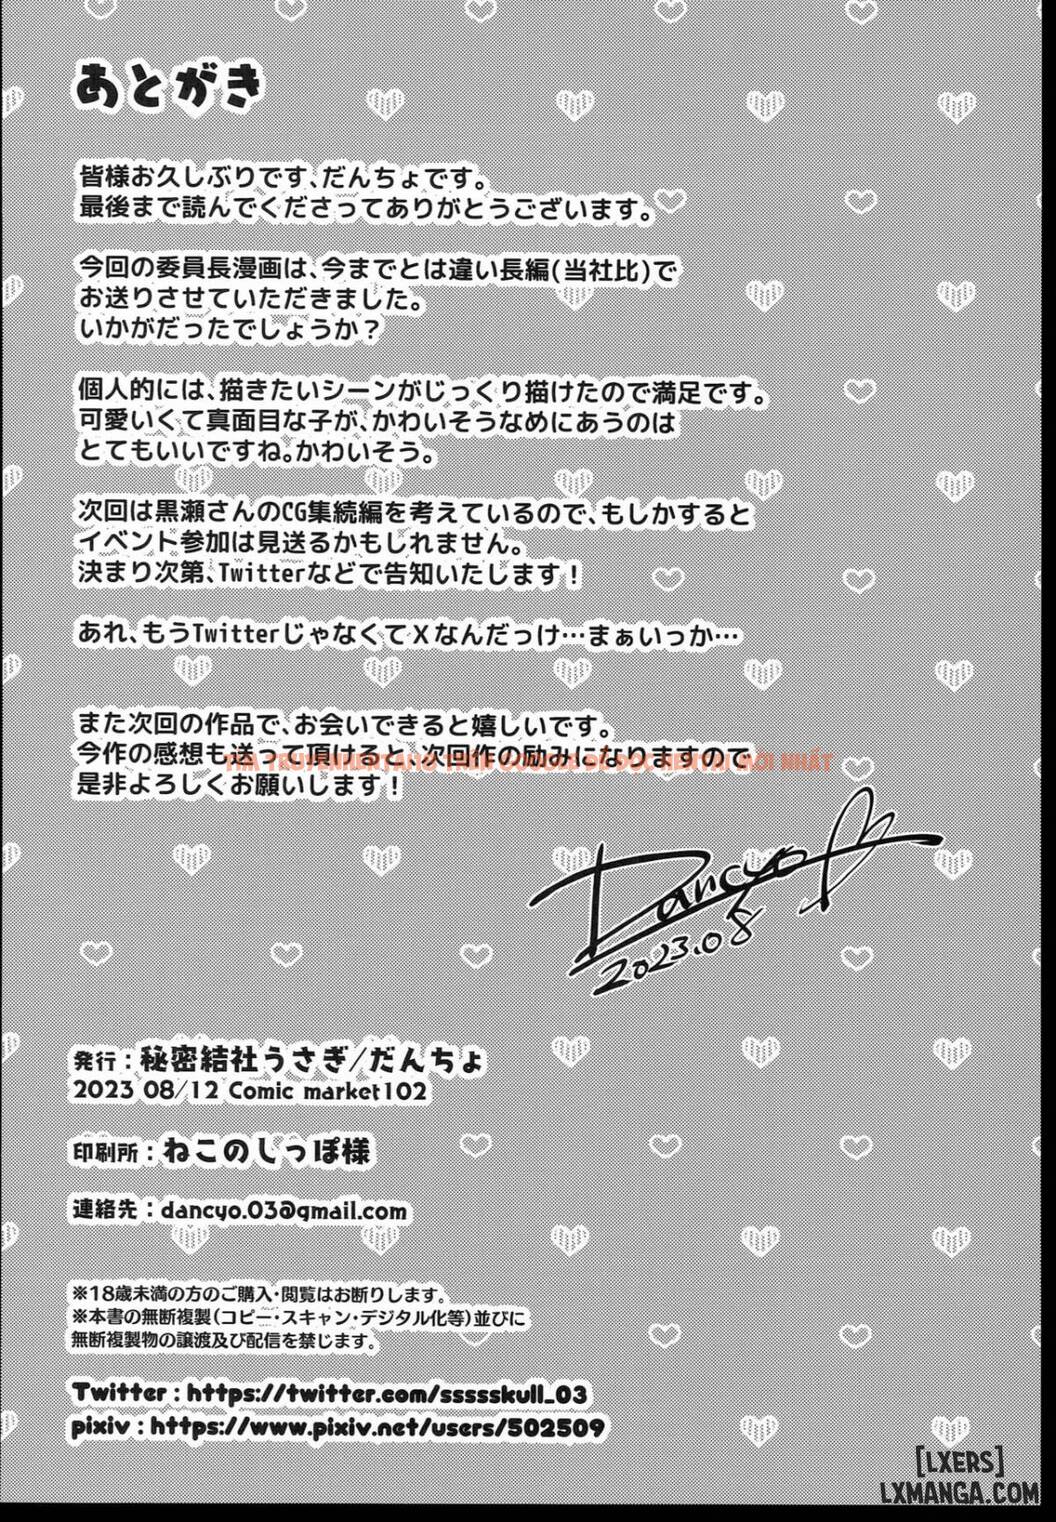 あとがき
皆様お久しぶりです、だんちょです。
最後まで読んでくださってありがとうございます。
今回の委員長漫画は、今までとは違い長編(当社比)で
お送りさせていただきました。
いかがだったでしょうか？
個人的には、描きたいシーンがじっくり描けたので満足です。
可愛いくて真面目な子が、かわいそうなめにあうのは
とてもいいですね。かわいそう。
次回は黒瀬さんのCG集続編を考えているので、もしかすると
イベント参加は見送るかもしれません。
決まり次第、Twitterなどで告知いたします！
あれ、もうTwitterじゃなくてXなんだっけ…まぁいっか…
また次回の作品で、お会いできると嬉しいです。
今作の感想も送って頂けると、次回作の励みになりますので
TÌM TRUYENHENTAI18 TRÊN GOOGLE ĐỂ ĐỌC HENTAI MỚI NHẤT
是非よろしくお願いします！
Dancyo
2023.08
発行：秘密結社うさぎ/だんちょ
2023 08/12 Comic market102
印刷所：ねこのしっぽ様
連絡先：dancyo.03@gmail.com
※18歳未満の方のご購入・閲覧はお断りします。
※本書の無断複製(コピー・スキャン・デジタル化等)並びに
無断複製物の譲渡及び配信を禁じます。
Twitter : https://twitter.com/sssssskull_03
pixiv : https://www.pixiv.net/users/502509
[LXERS]
LXMANGA.COM